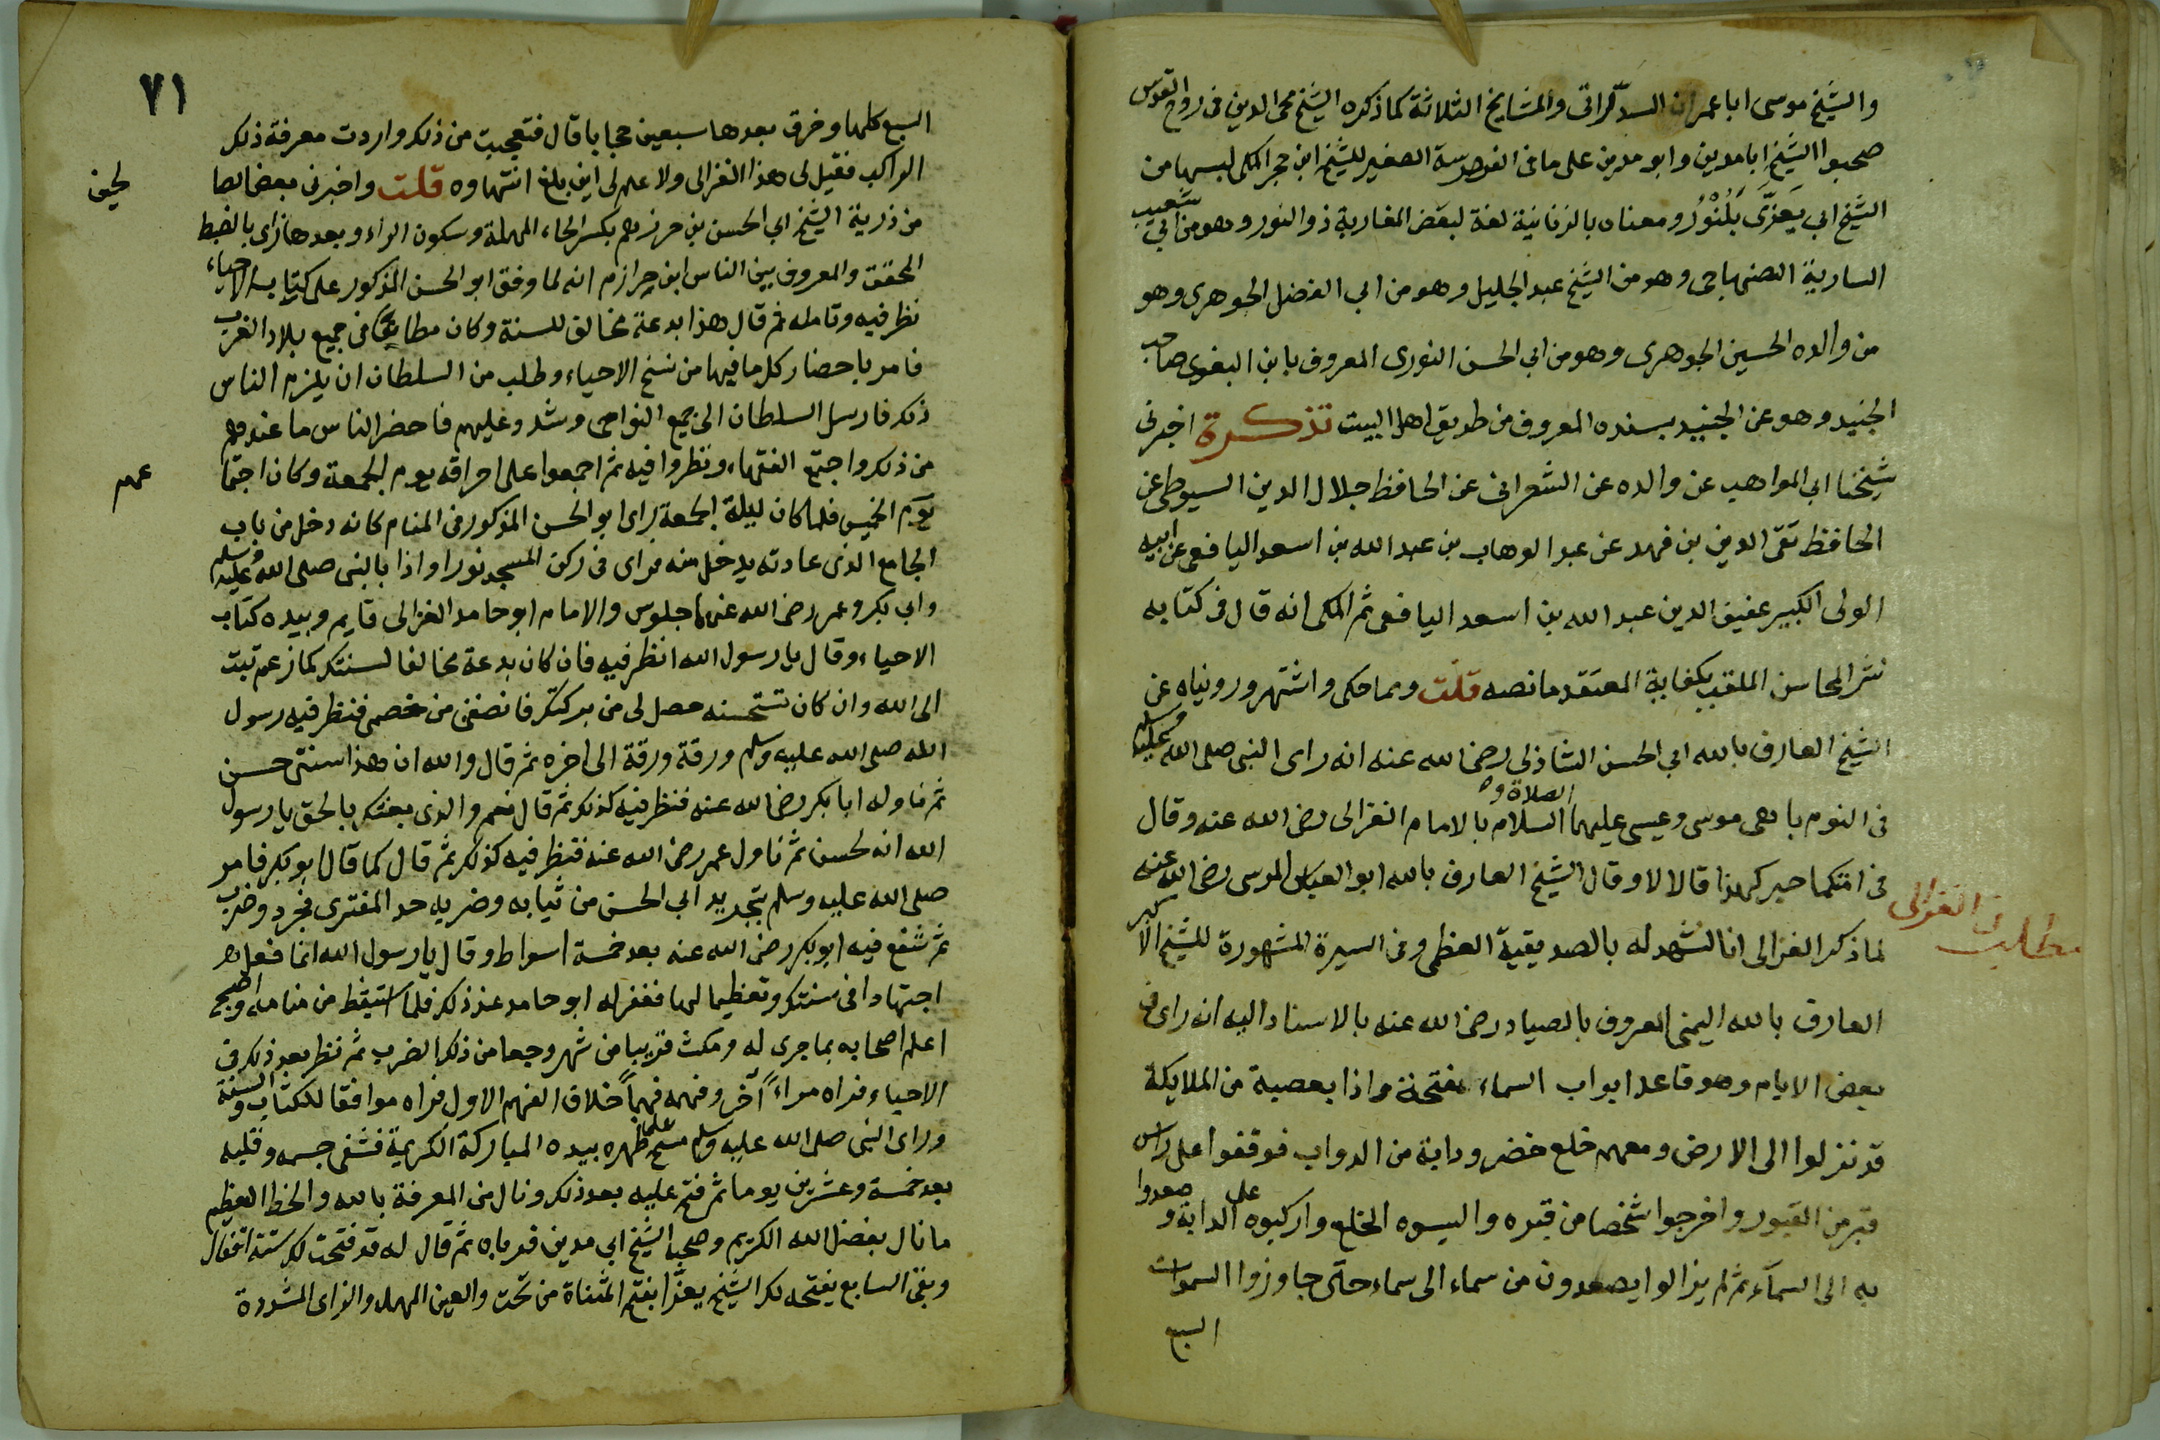 والشيخ موسى ابا عمران السدراتى والمشايخ الثلاثة كما ذكره الشيخ محى الدين فى روح القدس
صحبوا الشيخ ابا مدين وابو مدين على ما فى الفهرسة الصغير للشيخ ابن حجر المكى لبسها من
الشيخ ابي يعزّى يَلَنُّوْرُ ومعناه بالزنانية لغة لبعض المغاربة ذو النور وهو من ابي شعيب
السارية الصنهاجى وهو من الشيخ عبد الجليل وهو من ابي الفضل الجوهرى وهو
من والده الحسين الجوهرى وهو من ابي الحسن النورى المعروف بابن البغوى صاحب
الجنيد وهو عن الجنيد بسنده المعروف من طريق اهل البيت تذكرة اخبرنى
شيخنا ابي المواهب عن والده عن الشعرانى عن الحافظ جلال الدين السيوطى عن
الحافظ تقى الدين بن فهد عن عبد الوهاب بن عبد الله بن اسعد اليافعى عن ابيه
الولى الكبير عفيف الدين عبد الله بن اسعد اليافعى ثم المكى انه قال فى كتابه
نشر المحاسن الملقب بكفاية المعتقد ما نصه قلت ومما حكى واشتهر وروينا‌ه عن
الشيخ العارف بالله ابي الحسن الشاذلي رضى الله عنه انه راى النبى صلى الله عليه وسلم
فى النوم باهى موسى وعيسى عليهما الصلاة والسلام بالامام الغزالى رضى الله عنه وقال
فى امتكما حبر كهذا قالا لا وقال الشيخ العارف بالله ابو العباس المرسى رضى الله عنه
مطلب فى الغزالى
لما ذكر الغزالى انا لنشهد له بالصديقية العظمى وفى السيرة المشهورة للشيخ الاكبر
العارف بالله اليمنى المعروف بالصياد رضى الله عنه بالاسناد اليه انه راى فى
بعض الايام وهو قاعد ابواب السماء مفتحة واذا بعصبة من الملايكة
قد نزلوا الى الارض ومعهم خلع خضر ودابة من الدواب فوقفوا على راس
قبر من القبور واخرجوا شخصا من قبره والبسوه الخلع واركبوه على الدابة وصعدوا
به الى السمآء ثم لم يزالوا يصعدون من سماء الى سماء حتى جاوزوا السموات
السبع
٧١
السبع كلها وخرق بعدها سبعين حجابا قال فتعجبت من ذلك واردت معرفة ذلك
الراكب فقيل لى هذا الغزالى ولا علم لى اين بلغ انتهاوه قلت واخبرنى بعض الصا
لحين
من ذرية الشيخ ابي الحسن بن حرزهم بكسر الحاء المهملة وسكون الراء وبعدها زاى بالضبط
المحقق والمعروف بين الناس ابن حرازم انه لما وقف ابو الحسن المذكور على كتاب الاحياء
نظر فيه وتامله ثم قال هذا بدعة مخالف للسنة وكان مطاعا فى جميع بلاد الغرب
فامر باحضار كل ما فيها من نسخ الاحياء وطلب من السلطان ان يلزم الناس
ذلك فارسل السلطان الى جميع النواحى وشدد عليهم فاحضر الناس ما عندهم
من ذلك واجتمع الفقهاء ونظروا فيه ثم اجمعوا على احراقه يوم الجمعة وكان اجتما
عهم
يوم الخميس فلما كان ليلة الجمعة راى ابو الحسن المذكور فى المنام كانه دخل من باب
الجامع الذى عادته يدخل منه فراى فى ركن المسجد نورا واذا بالنبى صلى الله عليه وسلم
وابي بكر وعمر رضى الله عنهما جلوس والامام ابو حامد الغزالى قايم وبيده كتاب
الاحياء وقال يا رسول الله انظر فيه فان كان بدعة مخالفا لسنتك كما زعم تبت
الى الله وان كان تستحسنه حصل لى من بركتك فانصفنى من خصمى فنظر فيه رسول
الله صلى الله عليه وسلم ورقة ورقة الى اخره ثم قال والله ان هذا سنتى حسن
ثم ناوله ابا بكر رضى الله عنه فنظر فيه كذلك ثم قال نعم والذى بعثك بالحق يا رسول
الله انه لحسن ثم ناول عمر رضى الله عنه فنظر فيه كذلك ثم قال كما قال ابو بكر فامر
صلى الله عليه وسلم بتجريد ابي الحسن من ثيابه وضربه حد المفترى فجرد وضرب
ثم شفع فيه ابو بكر رضى الله عنه بعد خمسة اسواط وقال يا رسول الله انما فعل هذا
اجتهادا فى سنتك وتعظيما لها فغفر له ابو حامد عند ذلك فلما استيقظ من منامه واصبح
اعلم اصحابه بما جرى له ومكث قريبا من شهر وجعا من ذلك الضرب ثم نظر بعد ذلك فى
الاحياء فراه مراءً آخر وفهمه فهماً خلاف الفهم الاول فراه موافقا للكتاب والسنة
وراى النبى صلى الله عليه وسلم مسح على ظهره بيده المباركة الكريمة فشفى جسمه وقلبه
بعد خمسة وعشرين يوما ثم فتح عليه بعد ذلك ونال من المعرفة بالله والحظ العظيم
ما نال بفضل الله الكريم وصحب الشيخ ابي مدين فرباه ثم قال له قد فتحت لك ستة اقفال
وبقى السابع يفتحه لك الشيخ يعزّا بفتح المثناة من تحت والعين المهملة والزاى المشددة